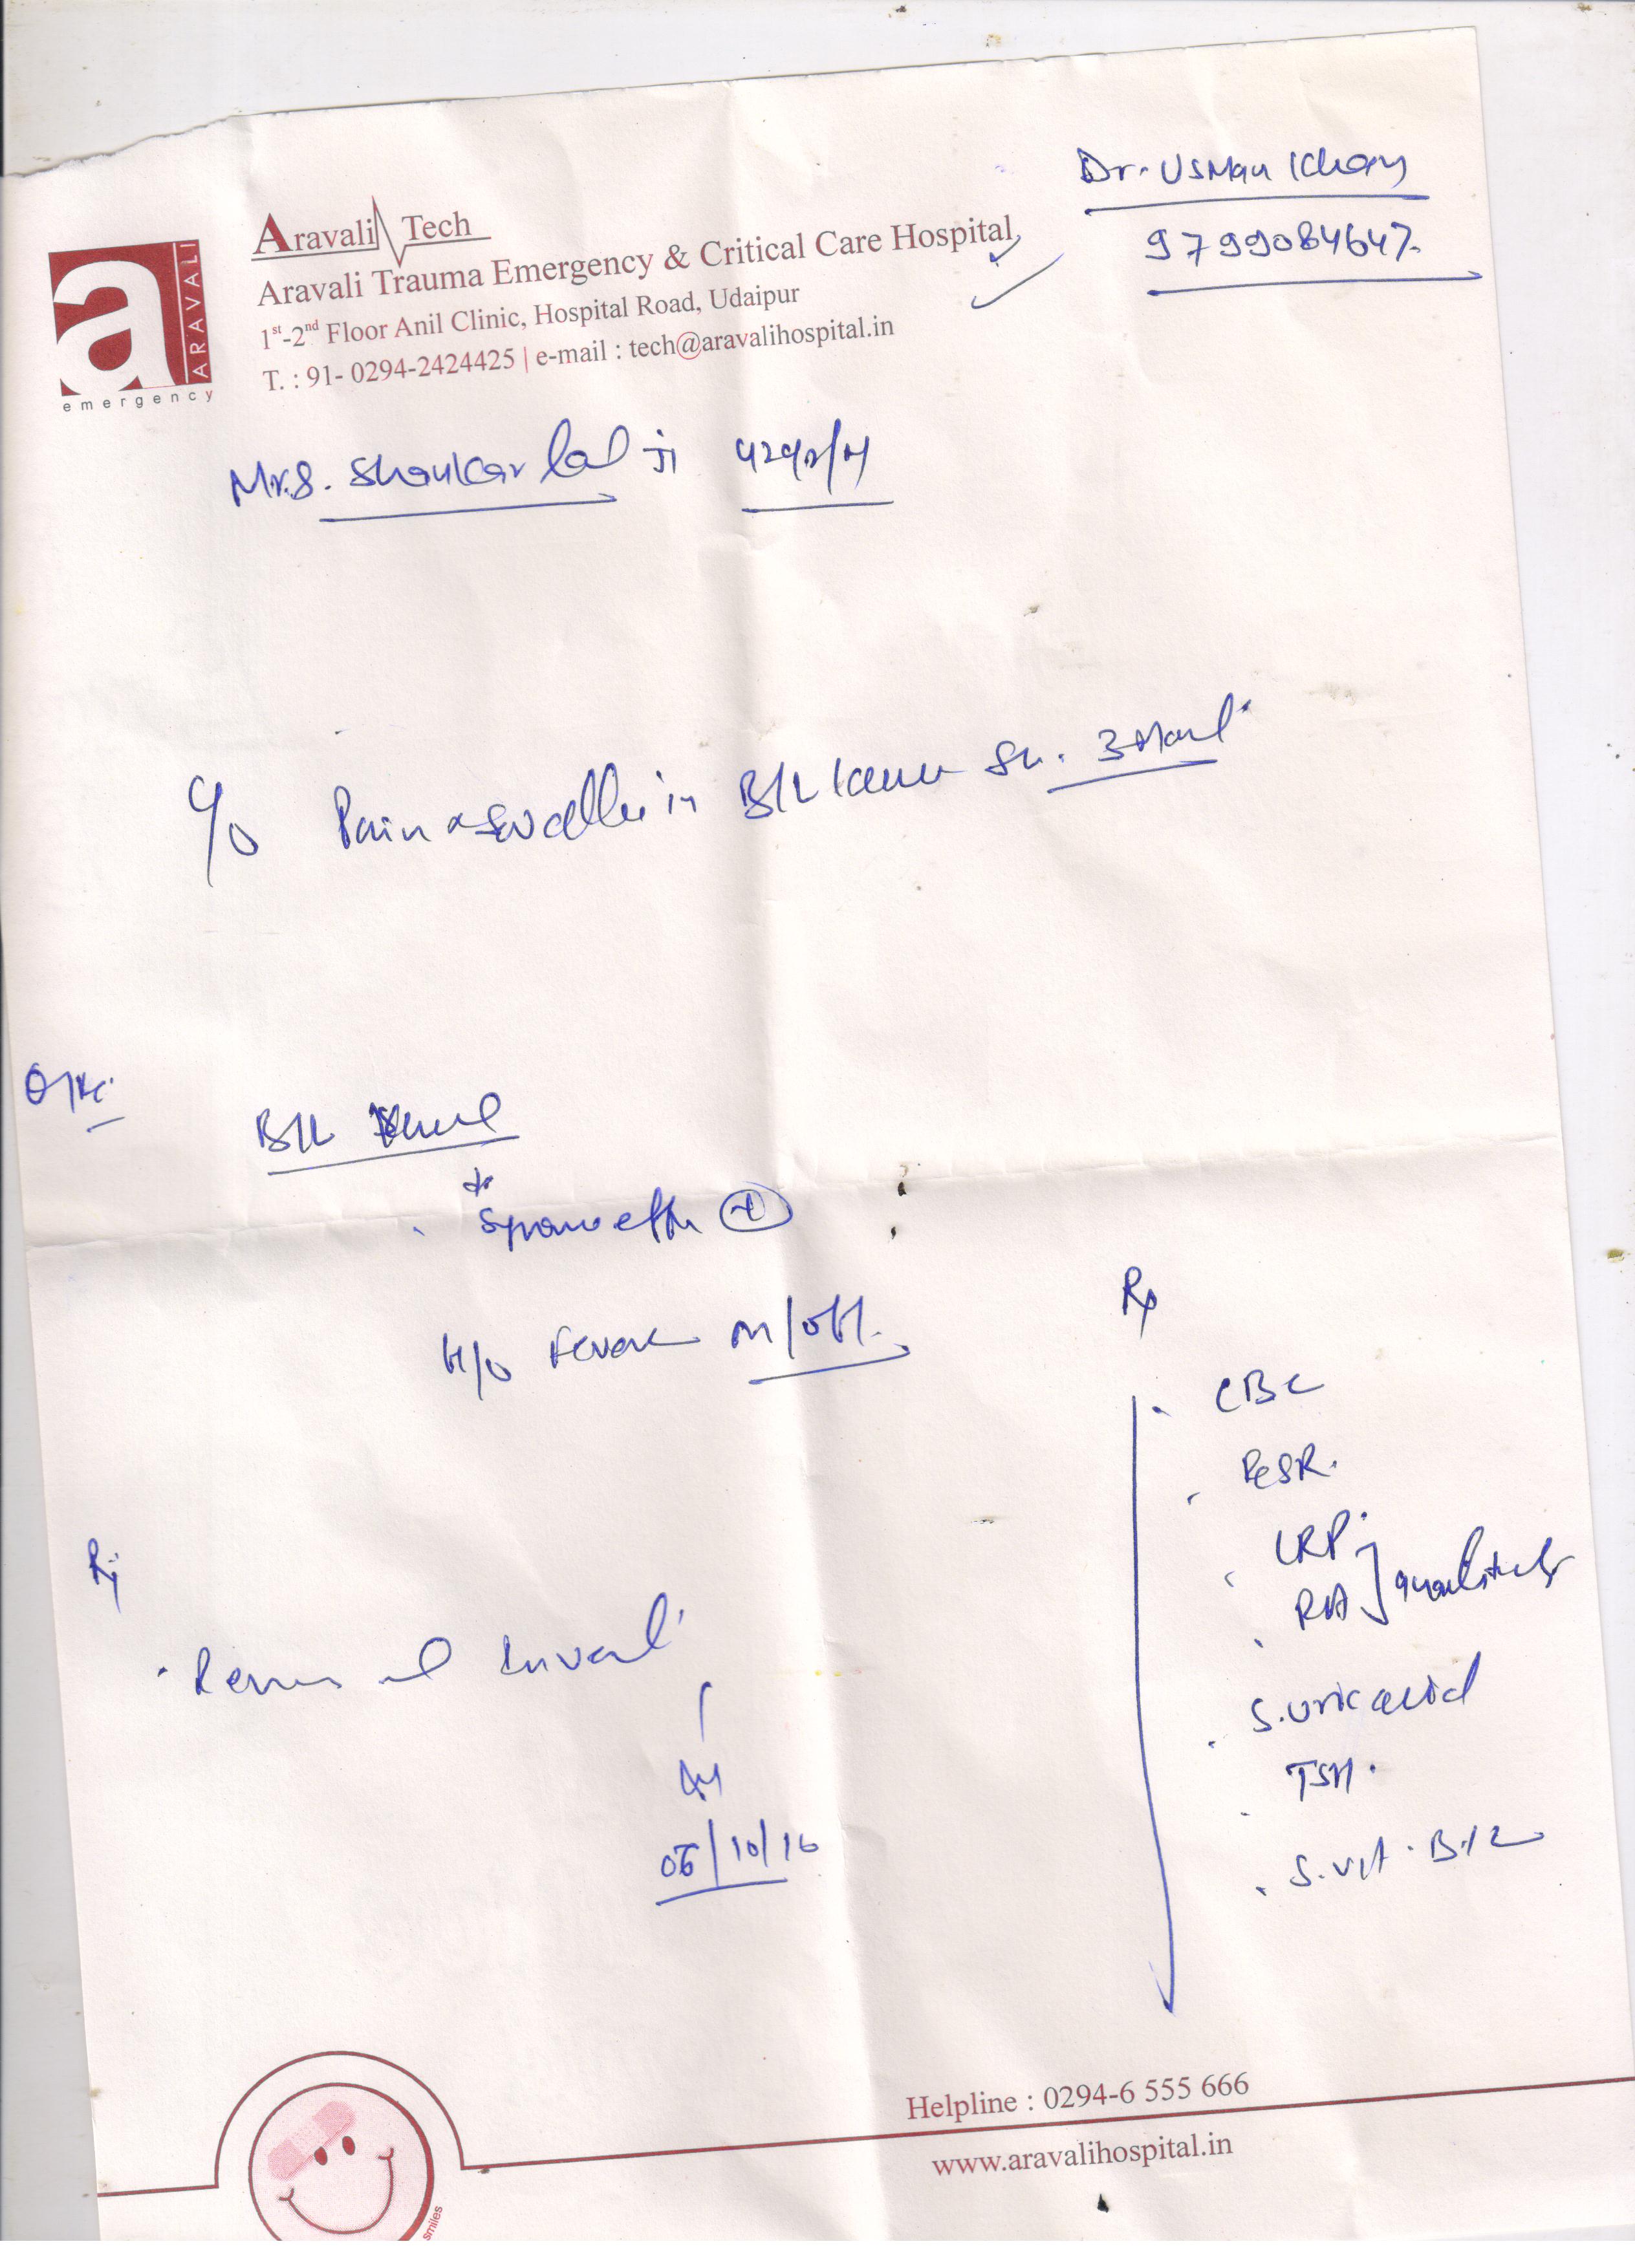 Dr. Usman Khan
9799084647.
Aravali Tech
Aravali Trauma Emergency & Critical Care Hospital
1st-2nd Floor Anil Clinic, Hospital Road, Udaipur
T. : 91- 0294-2424425 | e-mail : tech@aravalihospital.in
a
ARAVALI
emergency
Mr. S. Shankar lal ji 42yr/M
C/o Pain & swelling in B/L knee
O/E
B/L knee
H/o Fever on/off.
Rx
CBC
ESR.
CRP
RA
S. uric acid
TSH.
S. Vit. B12
Rx
05/10/16
Helpline : 0294-6 555 666
www.aravalihospital.in
smiles